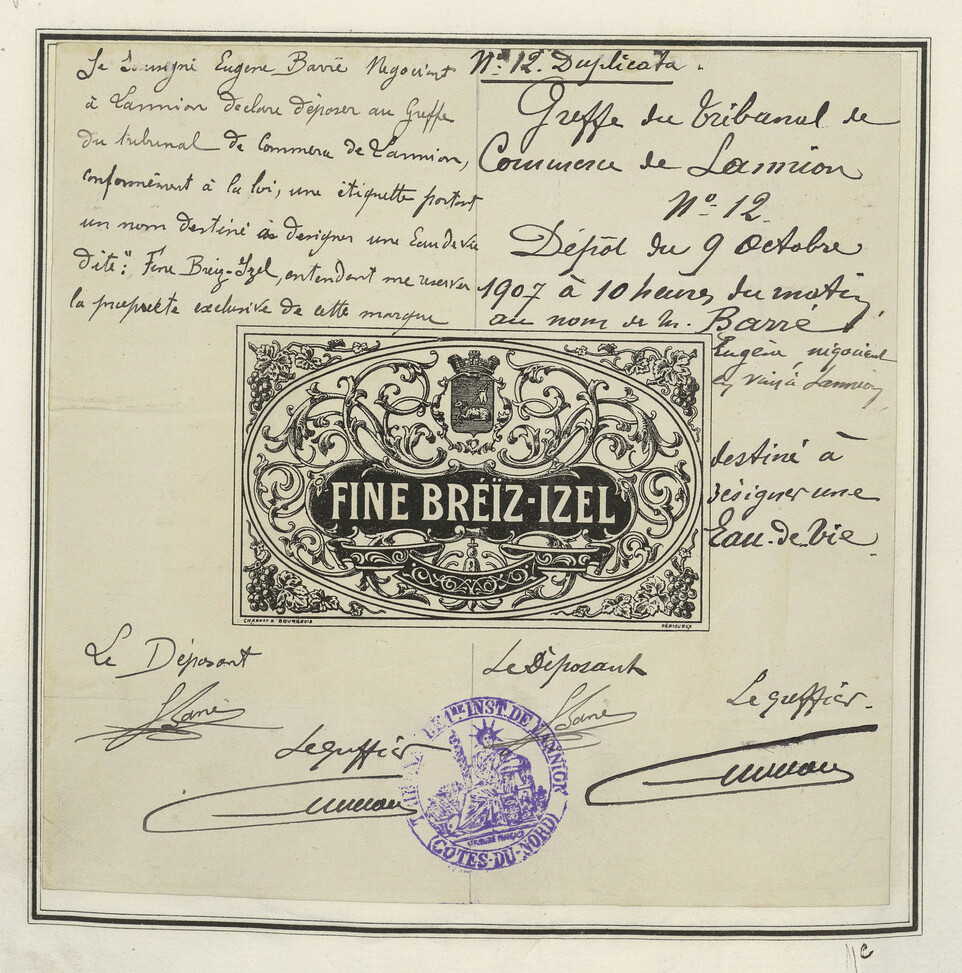 Je soussigné Eugène Barré Négociant
à Lannion déclare déposer au Greffe
du tribunal de Commerce de Lannion,
conformément à la loi, une étiquette portant
un nom destiné à designer une Eau de vie
dite : Fine Breiz-Izel, entendant me reserver
la propriété exclusive de cette marque
No 12. Duplicata.
Greffe du Tribunal de
Commerce de Lannion
No 12
Dépôt du 9 Octobre
1907 à 10 heures du matin
au nom de M. Barré
Eugène, négociant
en vins à Lannion
destiné à
désigner une
Eau-de-Vie
FINE BRÉÏZ-IZEL
CHABROT & BOURGEOIS
PÉRIGUEUX
Le Déposant
Le Déposant
Le greffier.
Le Greffier
DE 1RE INST. DE LANNION
(CÔTES-DU-NORD)